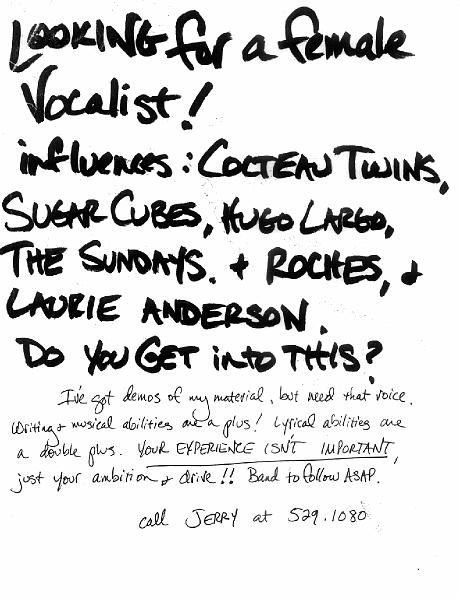 LOOKING for a female
Vocalist!
influences: COCTEAU TWINS,
SUGAR CUBES, HUGO LARGO,
THE SUNDAYS. + ROCHES, &
LAURIE ANDERSON.
DO YOU GET into THIS?
I've got demos of my material, but need that voice.
Writing & musical abilities are a plus! Lyrical abilities are
a double plus. YOUR EXPERIENCE ISN'T IMPORTANT,
just your ambition & drive!! Band to follow ASAP.
call JERRY at 529.1080